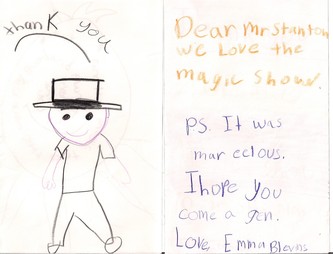 thanK you
Dear Mr Stanton
we Love the
magic Show.
PS. It was
mar celous.
I hope you
come a gen.
Love, Emma Blevins